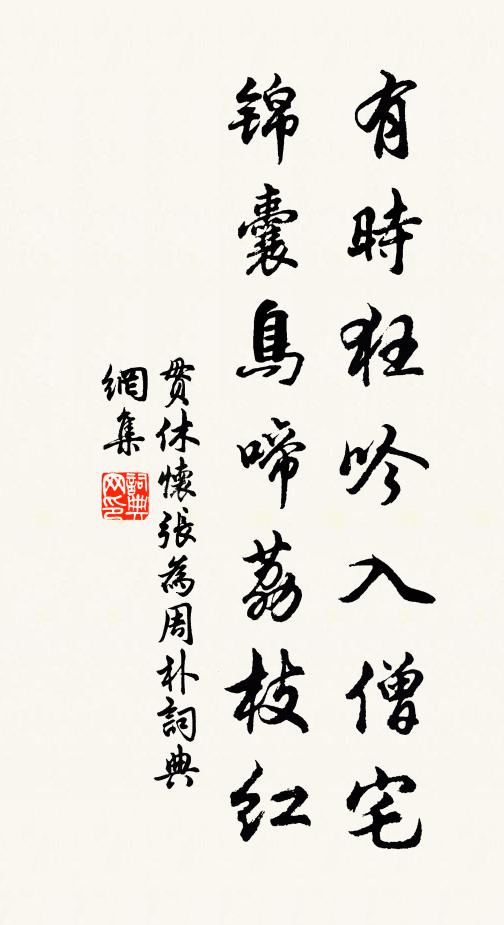 有時狂吟入僧宅
锦囊鳥啼荔枝红
貫休懷張為周朴詞典
網集
詞典网印